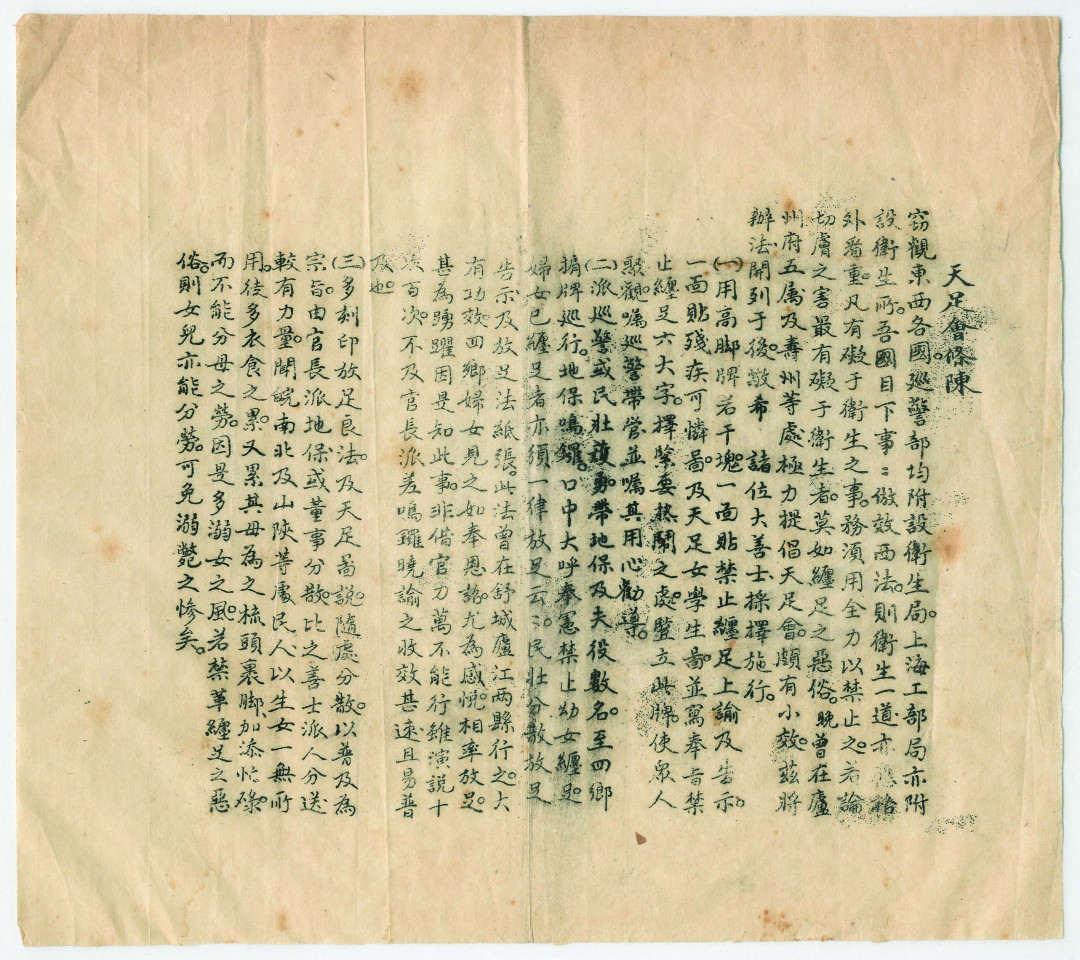 天足會條陳
竊觀東西各國巡警部均附設衛生局。上海工部局亦附
設衛生所。吾國目下事〻倣效西法。則衛生一道亦應
外看重。凡有礙于衛生之事。務須用全力以禁止之。若論
切膚之害最有礙于衛生者。莫如纏足之惡俗。晚曾在廬
州府五属及壽州等處極力提倡天足會。頗有小效。茲將
辦法開列于後。敬希 諸位大善士採擇施行。
(一)用高脚牌若干塊。一面貼禁止纏足上諭及告示。
一面貼殘疾可憐啚。及天足女學生啚。並寫奉旨禁
止纏足六大字。擇緊要熱鬧之處。豎立此牌。使眾人
聚觀。嘱巡警帶管並嘱其用心勸導。
(二)派巡警或民壯護勇。帶地保及夫役數名。至四鄉
掮牌巡行。地保鳴鑼。口中大呼奉憲禁止幼女纏足。
婦女已纏足者亦須一律放足云〻。民壯分散放足
告示及放足法紙張。此法曾在舒城廬江两縣行之。大
有功效。四鄉婦女見之如奉恩誥。尤為感悅。相率放足。
甚為踴躍。因是知此事。非借官力萬不能行。雖演説十
次百次。不及官長派差鳴鑼曉諭之收效甚速且易普
及也。
(三)多刻印放足良法。及天足啚説。隨處分散。以普及為
宗旨。由官長派地保或董事分散。比之善士派人分送
較有力量。聞皖南北及山陝等處民人。以生女一無所
用。徒多衣食之累。又累其母為之梳頭裹脚加添忙碌。
而不能分母之勞。因是多溺女之風。若禁革纏足之惡
俗。則女兒亦能分勞。可免溺斃之慘矣。